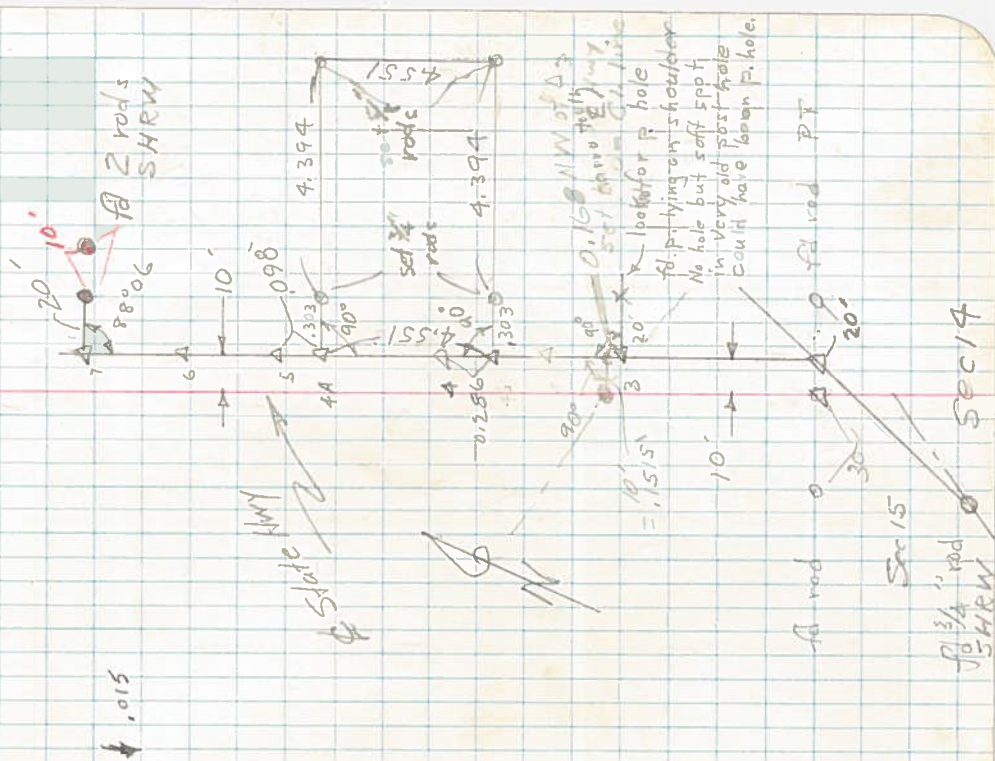 10'
fd 2 rods
SHRW
20'
88°06
7
6
10'
.098
5
4A
.303
90°
4.551
4.394
4.551
set 3/4"
rods
set 3/4"
rods
4.394
4
90°
.303
0.286
℄ State HWY
0.168 NW of Δ3
90°
90°
3
20'
10'
= .1515'
look for p hole
fd. p. lying on shoulder
No hole but soft spot
in very old post hole
could have been p. hole.
10'
fd rod PT
20'
30'
fd rod
Sec 15
Sec 14
fd 3/4" rod
SHRW
.015